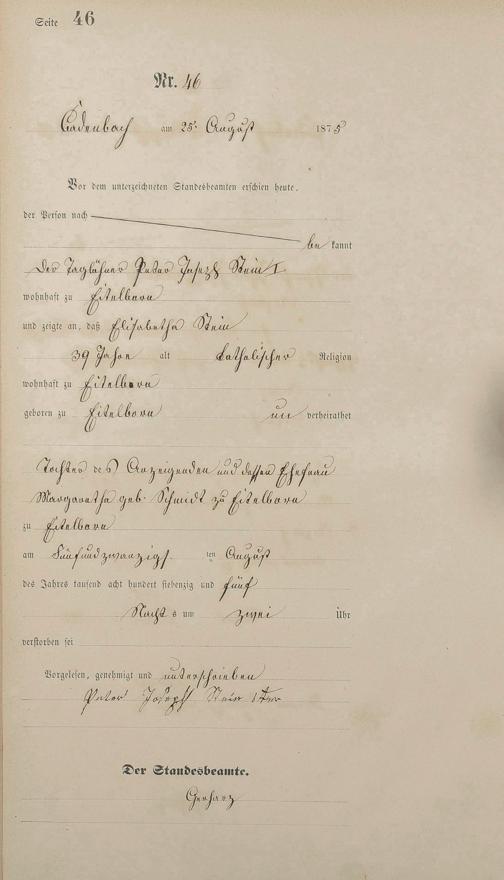 Seite 46
Nr. 46
Cadenbach am 25t August 1875
Vor dem unterzeichneten Standesbeamten erschien heute,
der Person nach
be kannt
der Taglöhner Peter Joseph Stein I
wohnhaft zu Eitelborn
und zeigte an, daß Elisabetha Stein
39 Jahre alt katholischer Religion
wohnhaft zu Eitelborn
geboren zu Eitelborn un verheirathet
Tochter des Anzeigenden und dessen Ehefrau
Margaretha geb. Schmidt zu Eitelborn
zu Eitelborn
am Fünfundzwanzigs ten August
des Jahres tausend acht hundert siebenzig und fünf
Nacht s um zwei Uhr
verstorben sei
Vorgelesen, genehmigt und unterschrieben
Peter Joseph Stein 1ter
Der Standesbeamte.
Gerharz